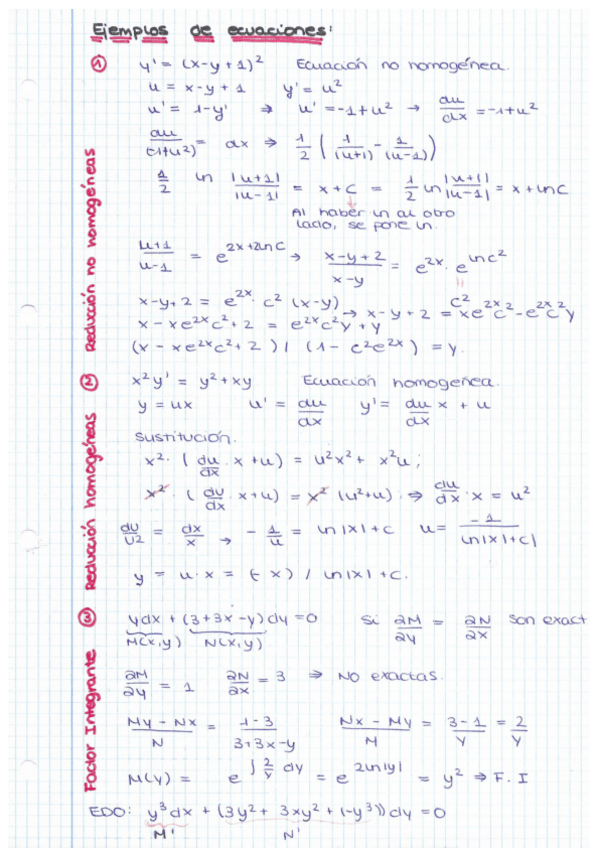 Ejemplos de ecuaciones:
Reducción no homogéneas
① y' = (x-y+1)² Ecuación no homogénea.
u = x-y+1 y' = u²
u' = 1-y' ⇒ u' = -1+u² → du/dx = -1+u²
du/(-1+u²) = dx ⇒ 1/2 (1/(|u+1|) - 1/(|u-1|))
1/2 ln |u+1|/|u-1| = x+C = 1/2 ln |u+1|/|u-1| = x + lnC
Al haber ln al otro
lado, se pone ln.
u+1/u-1 = e^(2x+2lnC) → x-y+2/x-y = e^(2x) · e^(lnC²)
C²
x-y+2 = e^(2x) · C² (x-y) → x-y+2 = xe^(2x)C² - e^(2x)C²y
x - xe^(2x)C² + 2 = e^(2x)C²y + y
(x - xe^(2x)C² + 2) / (1 - C²e^(2x)) = y.
Reducción homogéneas
② x²y' = y² + xy Ecuación homogénea.
y = ux u' = du/dx y' = du/dx x + u
Sustitución.
x² · (du/dx · x + u) = u²x² + x²u;
x² · (du/dx · x + u) = x² (u²+u) · ⇒ du/dx · x = u²
du/u² = dx/x → - 1/u = ln|x| + c u = -1/ln|x|+c|
y = u · x = (-x) / ln|x| + c.
Factor Integrante
③ ydx + (3+3x-y)dy = 0 Si ∂M/∂y = ∂N/∂x son exact
M(x,y) N(x,y)
∂M/∂y = 1 ∂N/∂x = 3 ⇒ No exactas.
My - Nx/N = 1-3/3+3x-y Nx - My/M = 3-1/y = 2/y
M(y) = e^(∫ 2/y dy) = e^(2ln|y|) = y² ⇒ F. I
EDO: y³dx + (3y² + 3xy² + (-y³))dy = 0
M' N'